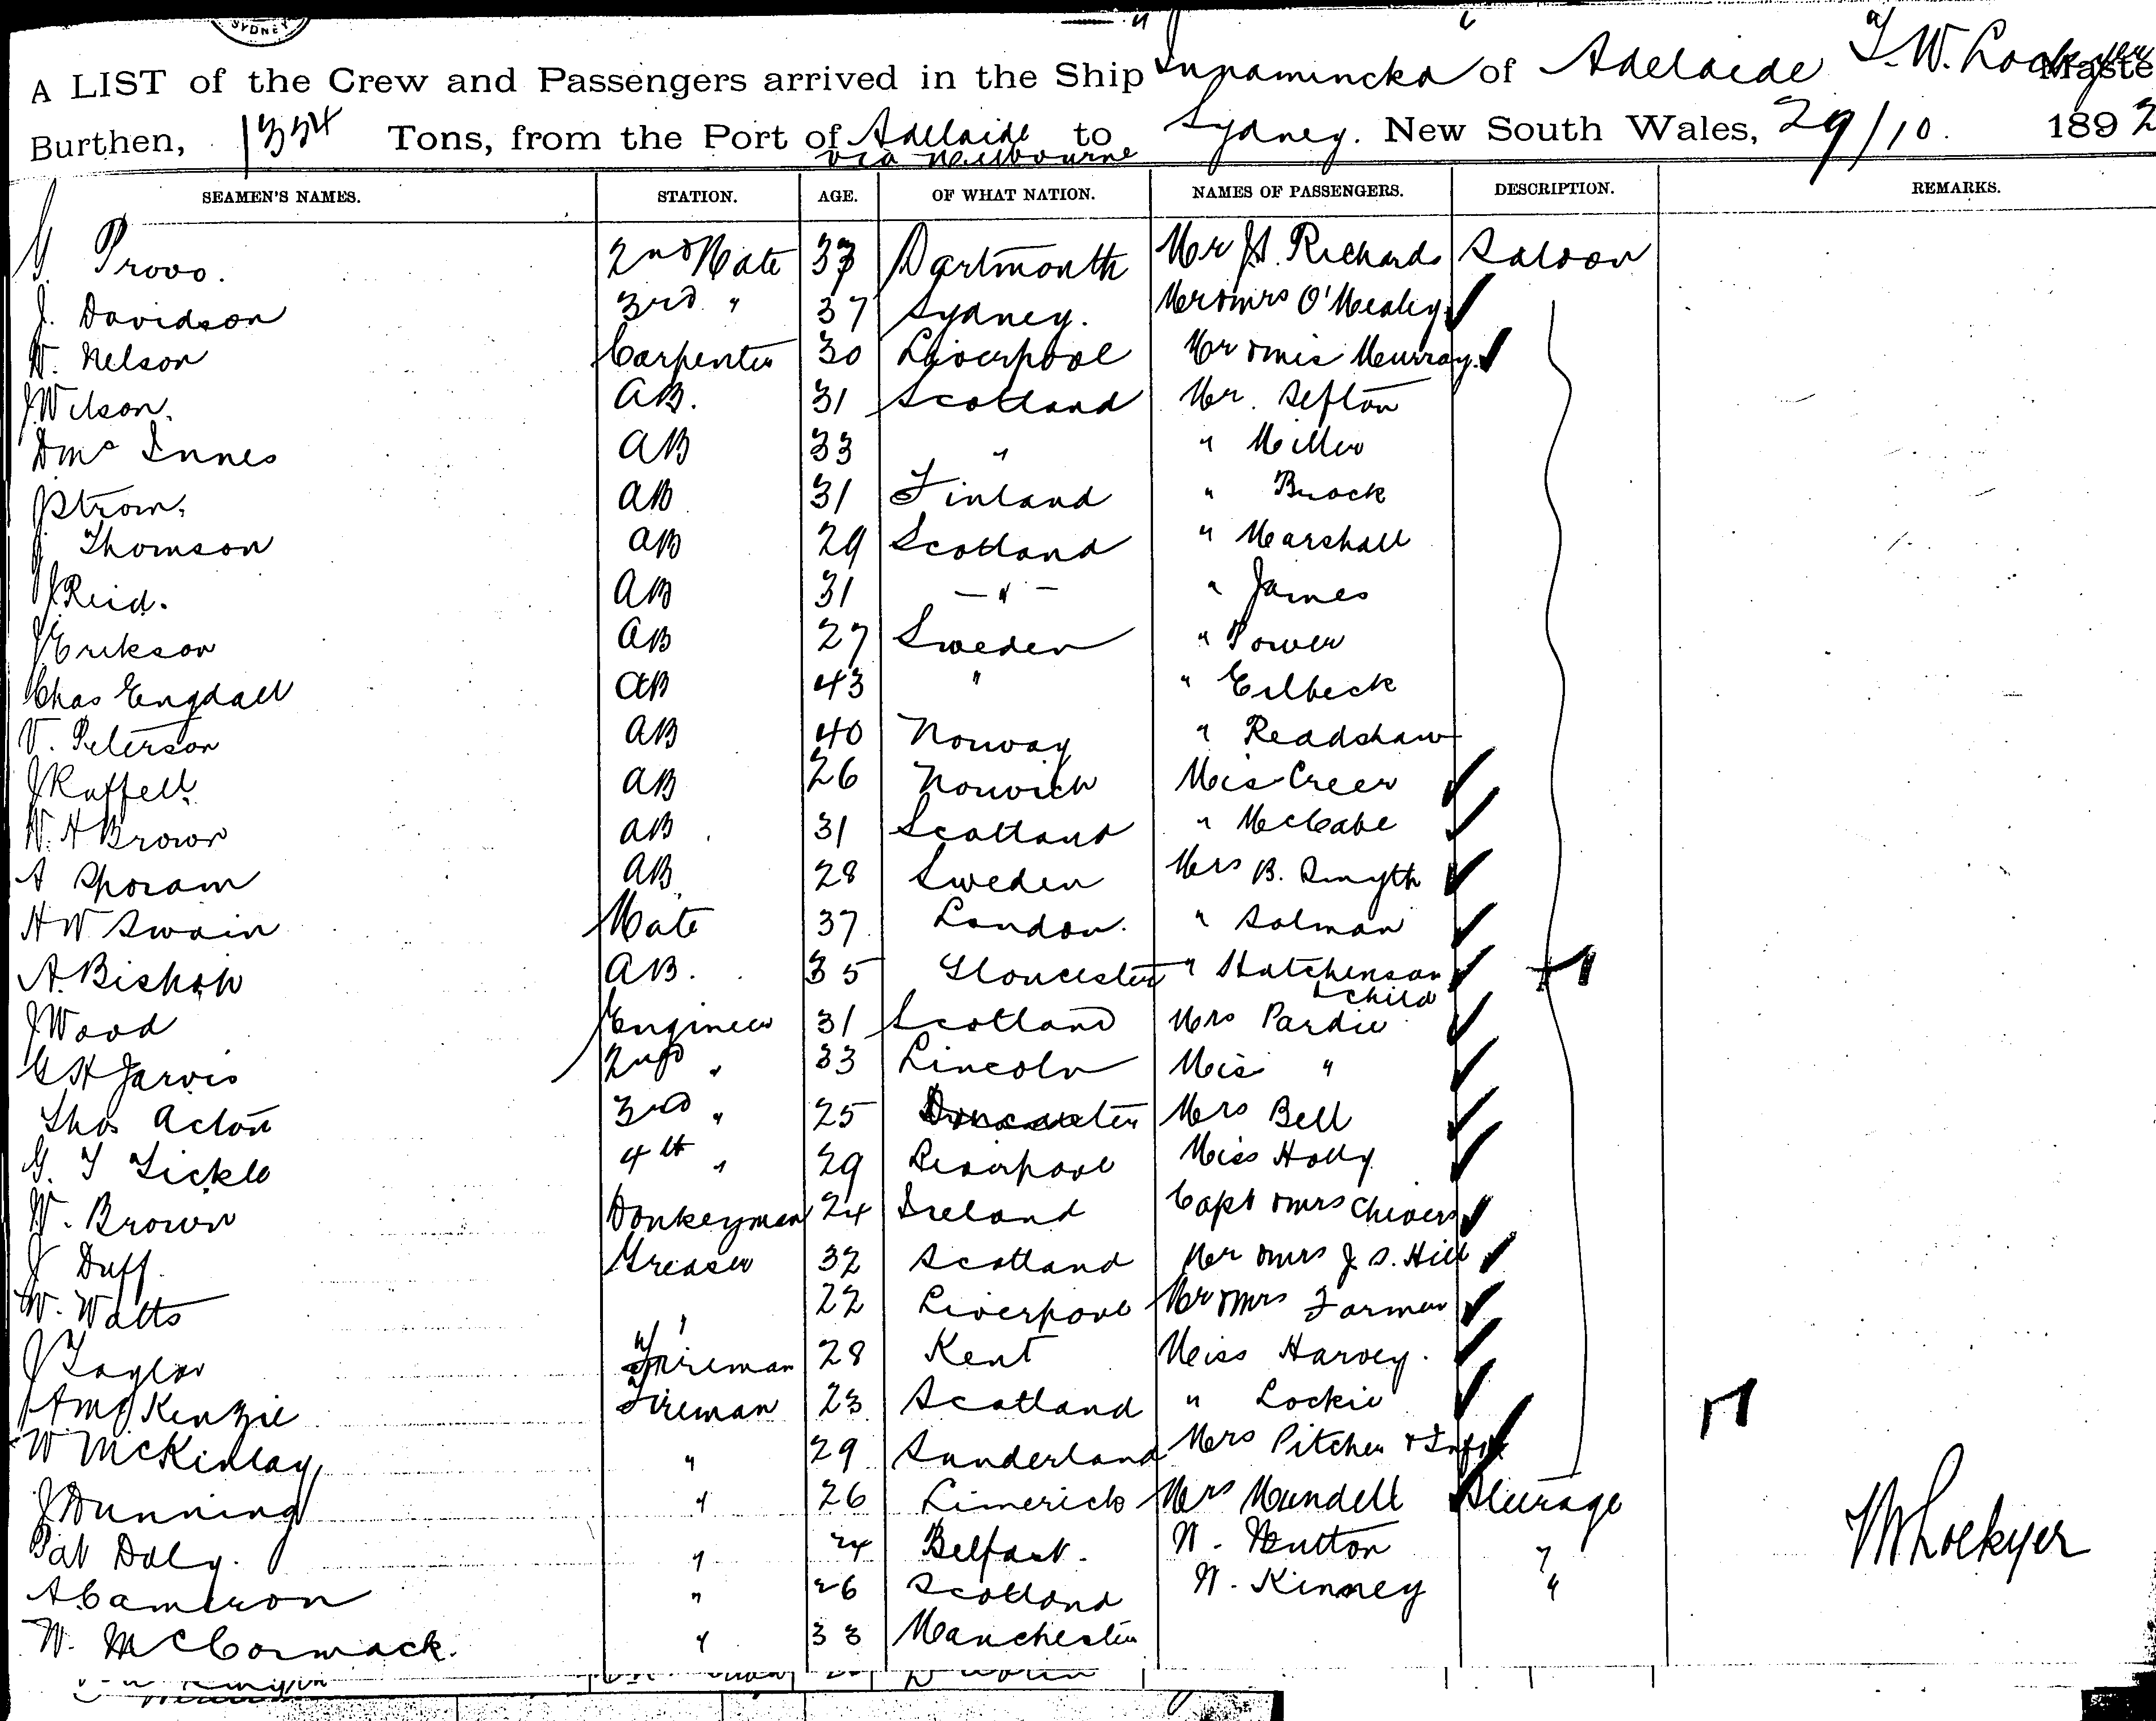 SYDNEY
A LIST of the Crew and Passengers arrived in the Ship "Innamincka" of Adelaide T. W. Lockyer Master
Burthen, 1354 Tons, from the Port of Adelaide to Sydney. New South Wales, 29/10. 1892
via Melbourne
SEAMEN'S NAMES. STATION. AGE. OF WHAT NATION. NAMES OF PASSENGERS. DESCRIPTION. REMARKS.
G. Provo. 2nd Mate 33 Dartmouth Mr J.H. Richards Saloon
J. Davidson 3rd " 37 Sydney. Mr & Mrs O'Mealey
W. Nelson Carpenter 30 Liverpool Mr & Mis Murray.
J Wilson. AB. 31 Scotland Mr. Sefton
D Mc Innes AB 33 " " Miller
J Strom. AB 31 Finland " Brock
J Thomson AB 29 Scotland " Marshall
J Reid. AB 31 — " — " James
J Erikson AB 27 Sweden " Power
Chas Engdall AB 43 " " Eilbeck
V. Peterson AB 40 Norway " Readshaw
J Ruffell. AB 26 Norwich Mis Creer
W. H Brown AB 31 Scotland " McCabe
A Sporam AB 28 Sweden Mrs B. Smyth
H W Swain Mate 37 London. " Salman
A. Bishop AB. 35 Gloucester " Hutchenson
& child
J Wood Engineer 31 Scotland Mrs Pardie
G H Jarvis 2nd " 33 Lincoln Mis "
Thos Acton 3rd " 25 Doncaster Mrs Bell
G. T Tickle 4th " 29 Liverpool Miss Holly
W. Brown Donkeyman 24 Ireland Capt & Mrs Chivers
J Duff. Greaser 32 Scotland Mr & Mrs J. S. Hill
W. Watts " 22 Liverpool Mr & Mrs Farmer
J Taylor Fireman 28 Kent Miss Harvey.
A Mc Kenzie Fireman 23 Scotland " Lockie
W McKinlay " 29 Sunderland Mrs Pitcher & Inft
J Dunning " 26 Limerick Mrs Mundell Steerage
Pat Daly. " 24 Belfast. W. Hutton "
A Cameron " 26 Scotland W. Kinney "
W. McCormack. " 33 Manchester
T W Lockyer